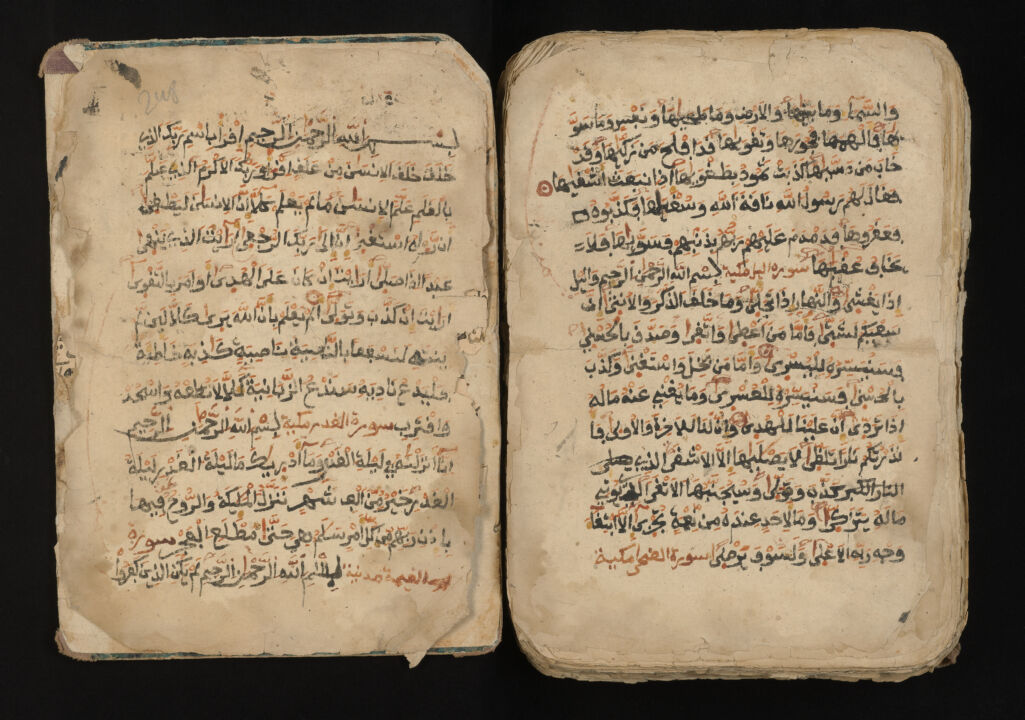 والسما وما بنيها والارض وما طحيها ونفس وما سو
ها فالهمها فجورها وتقويها قد افلح من زكيها وقد
خاب من دسيها كذبت ثمود بطغويها اذ انبعث اشقيها
فقال لهم رسول الله ناقة الله وسقيها فكذبوه
فعقروها فدمدم عليهم ربهم بذنبهم فسويها فلا
يخاف عقبها سورة اليل مكية بسم الله الرحمن الرحيم واليل
اذا يغشى والنهار اذا تجلى وما خلق الذكر والانثى ان
سعيكم لشتى فاما من اعطى واتقى وصدق بالحسنى
فسنيسره لليسرى واما من بخل واستغنى وكذب
بالحسنى فسنيسره للعسرى وما يغني عنه ماله
اذا تردى ان علينا للهدى وان لنا للاخرة والاولى فا
نذرتكم نارا تلظى لا يصليها الا الاشقى الذي
الذي كذب وتولى وسيجنبها الاتقى الذي يوتي
ماله يتزكى وما لاحد عنده من نعمة تجزى الا ابتغا
وجه ربه الاعلى ولسوف يرضى سورة الضحى مكية
248
بسم الله الرحمن الرحيم اقرا باسم ربك الذي
خلق خلق الانسن من علق اقرا وربك الاكرم الذي علم
بالقلم علم الانسن ما لم يعلم كلا ان الانسن ليطغى
ان راه استغنى ان الى ربك الرجعى ارايت الذي ينهى
عبدا اذا صلى ارايت ان كان على الهدى او امر بالتقوى
ارايت ان كذب وتولى الم يعلم بان الله يرى كلا لين لم
ينته لنسفعا بالناصية ناصية كذبة خاطية
فليدع ناديه سندع الزبانية كلا لا تطعه واسجد
واقترب سورة القدر مكية بسم الله الرحمن الرحيم
انا انزلنه في ليلة القدر وما ادريك ما ليلة القدر ليلة
القدر خير من الف شهر تنزل الملئكة والروح فيها
باذن ربهم من كل امر سلم هي حتى مطلع الفجر سورة
القيمة مدنية بسم الله الرحمن الرحيم لم يكن الذين كفروا